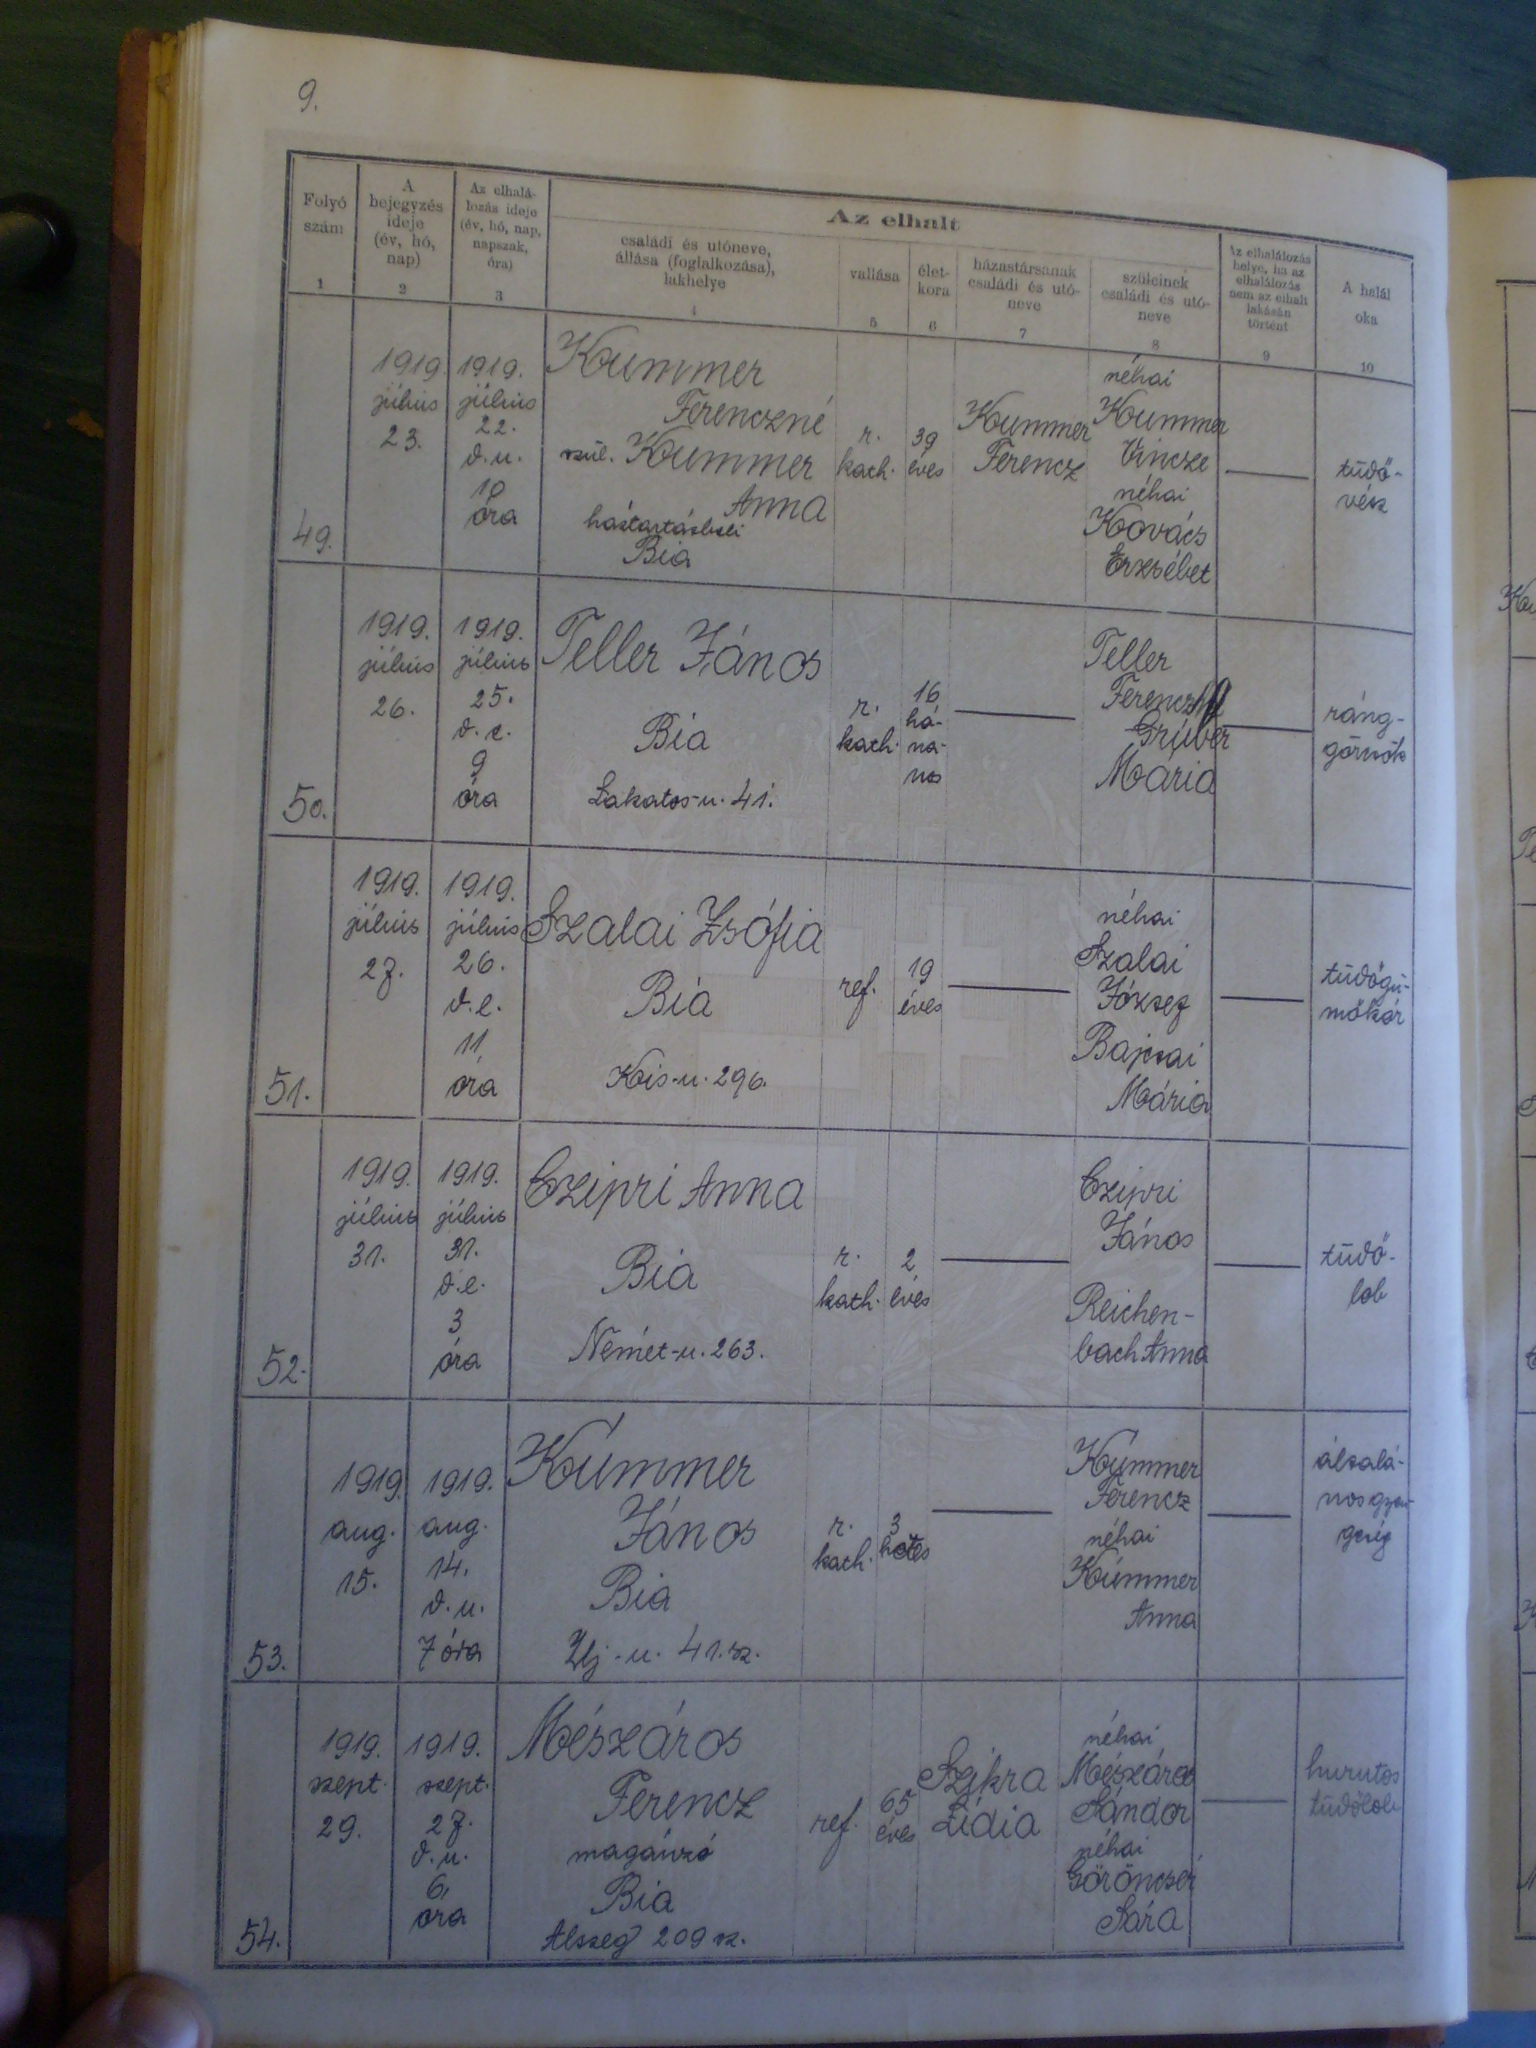 9.
Folyó
szám
1
A
bejegyzés
ideje
(év, hó,
nap)
2
Az elhalá-
lozás ideje
(év, hó, nap,
napszak,
óra)
3
Az elhalt
családi és utóneve,
állása (foglalkozása),
lakhelye
4
vallása
5
élet-
kora
6
házastársanak
családi és utó-
neve
7
szüleinek
családi és utó-
neve
8
Az elhalálozás
helye, ha az
elhalálozás
nem az elhalt
lakásán
történt
9
A halál
oka
10
49.
1919.
július
23.
1919.
július
22.
d.u.
10
óra
Kummer
Ferenczné
szül. Kummer
Anna
háztartásbeli
Bia
r.
kath.
39
éves
Kummer
Ferencz
néhai
Kummer
Vincze
néhai
Kovács
Erzsébet
tüdő-
vész
50.
1919.
július
26.
1919.
július
25.
d.e.
9
óra
Teller János
Bia
Lakatos-u. 41.
r.
kath.
16
hó-
na-
pos
Teller
Ferencz
Gruber
Mária
ráng-
görcsök
51.
1919.
július
27.
1919.
július
26.
d.e.
11
óra
Szalai Zsófia
Bia
Kis-u. 296.
ref.
19
éves
néhai
Szalai
József
Bajcsai
Mária
tüdőgü-
mőkór
52.
1919.
július
31.
1919.
július
31.
d.e.
3
óra
Czipri Anna
Bia
Német-u. 263.
r.
kath.
2
éves
Czipri
János
Reichen-
bach Anna
tüdő-
lob
53.
1919.
aug.
15.
1919.
aug.
14.
d.u.
7 óra
Kummer
János
Bia
Uj-u. 41. sz.
r.
kath.
3
hetes
Kummer
Ferencz
néhai
Kummer
Anna
általá-
nos gyen-
geség
54.
1919.
szept.
29.
1919.
szept.
27.
d.u.
6
óra
Mészáros
Ferencz
magánzó
Bia
Alszeg 209 sz.
ref.
65
éves
Szikra
Lidia
néhai
Mészáros
Sándor
néhai
Göröncsér
Sára
hurutos
tüdőlob